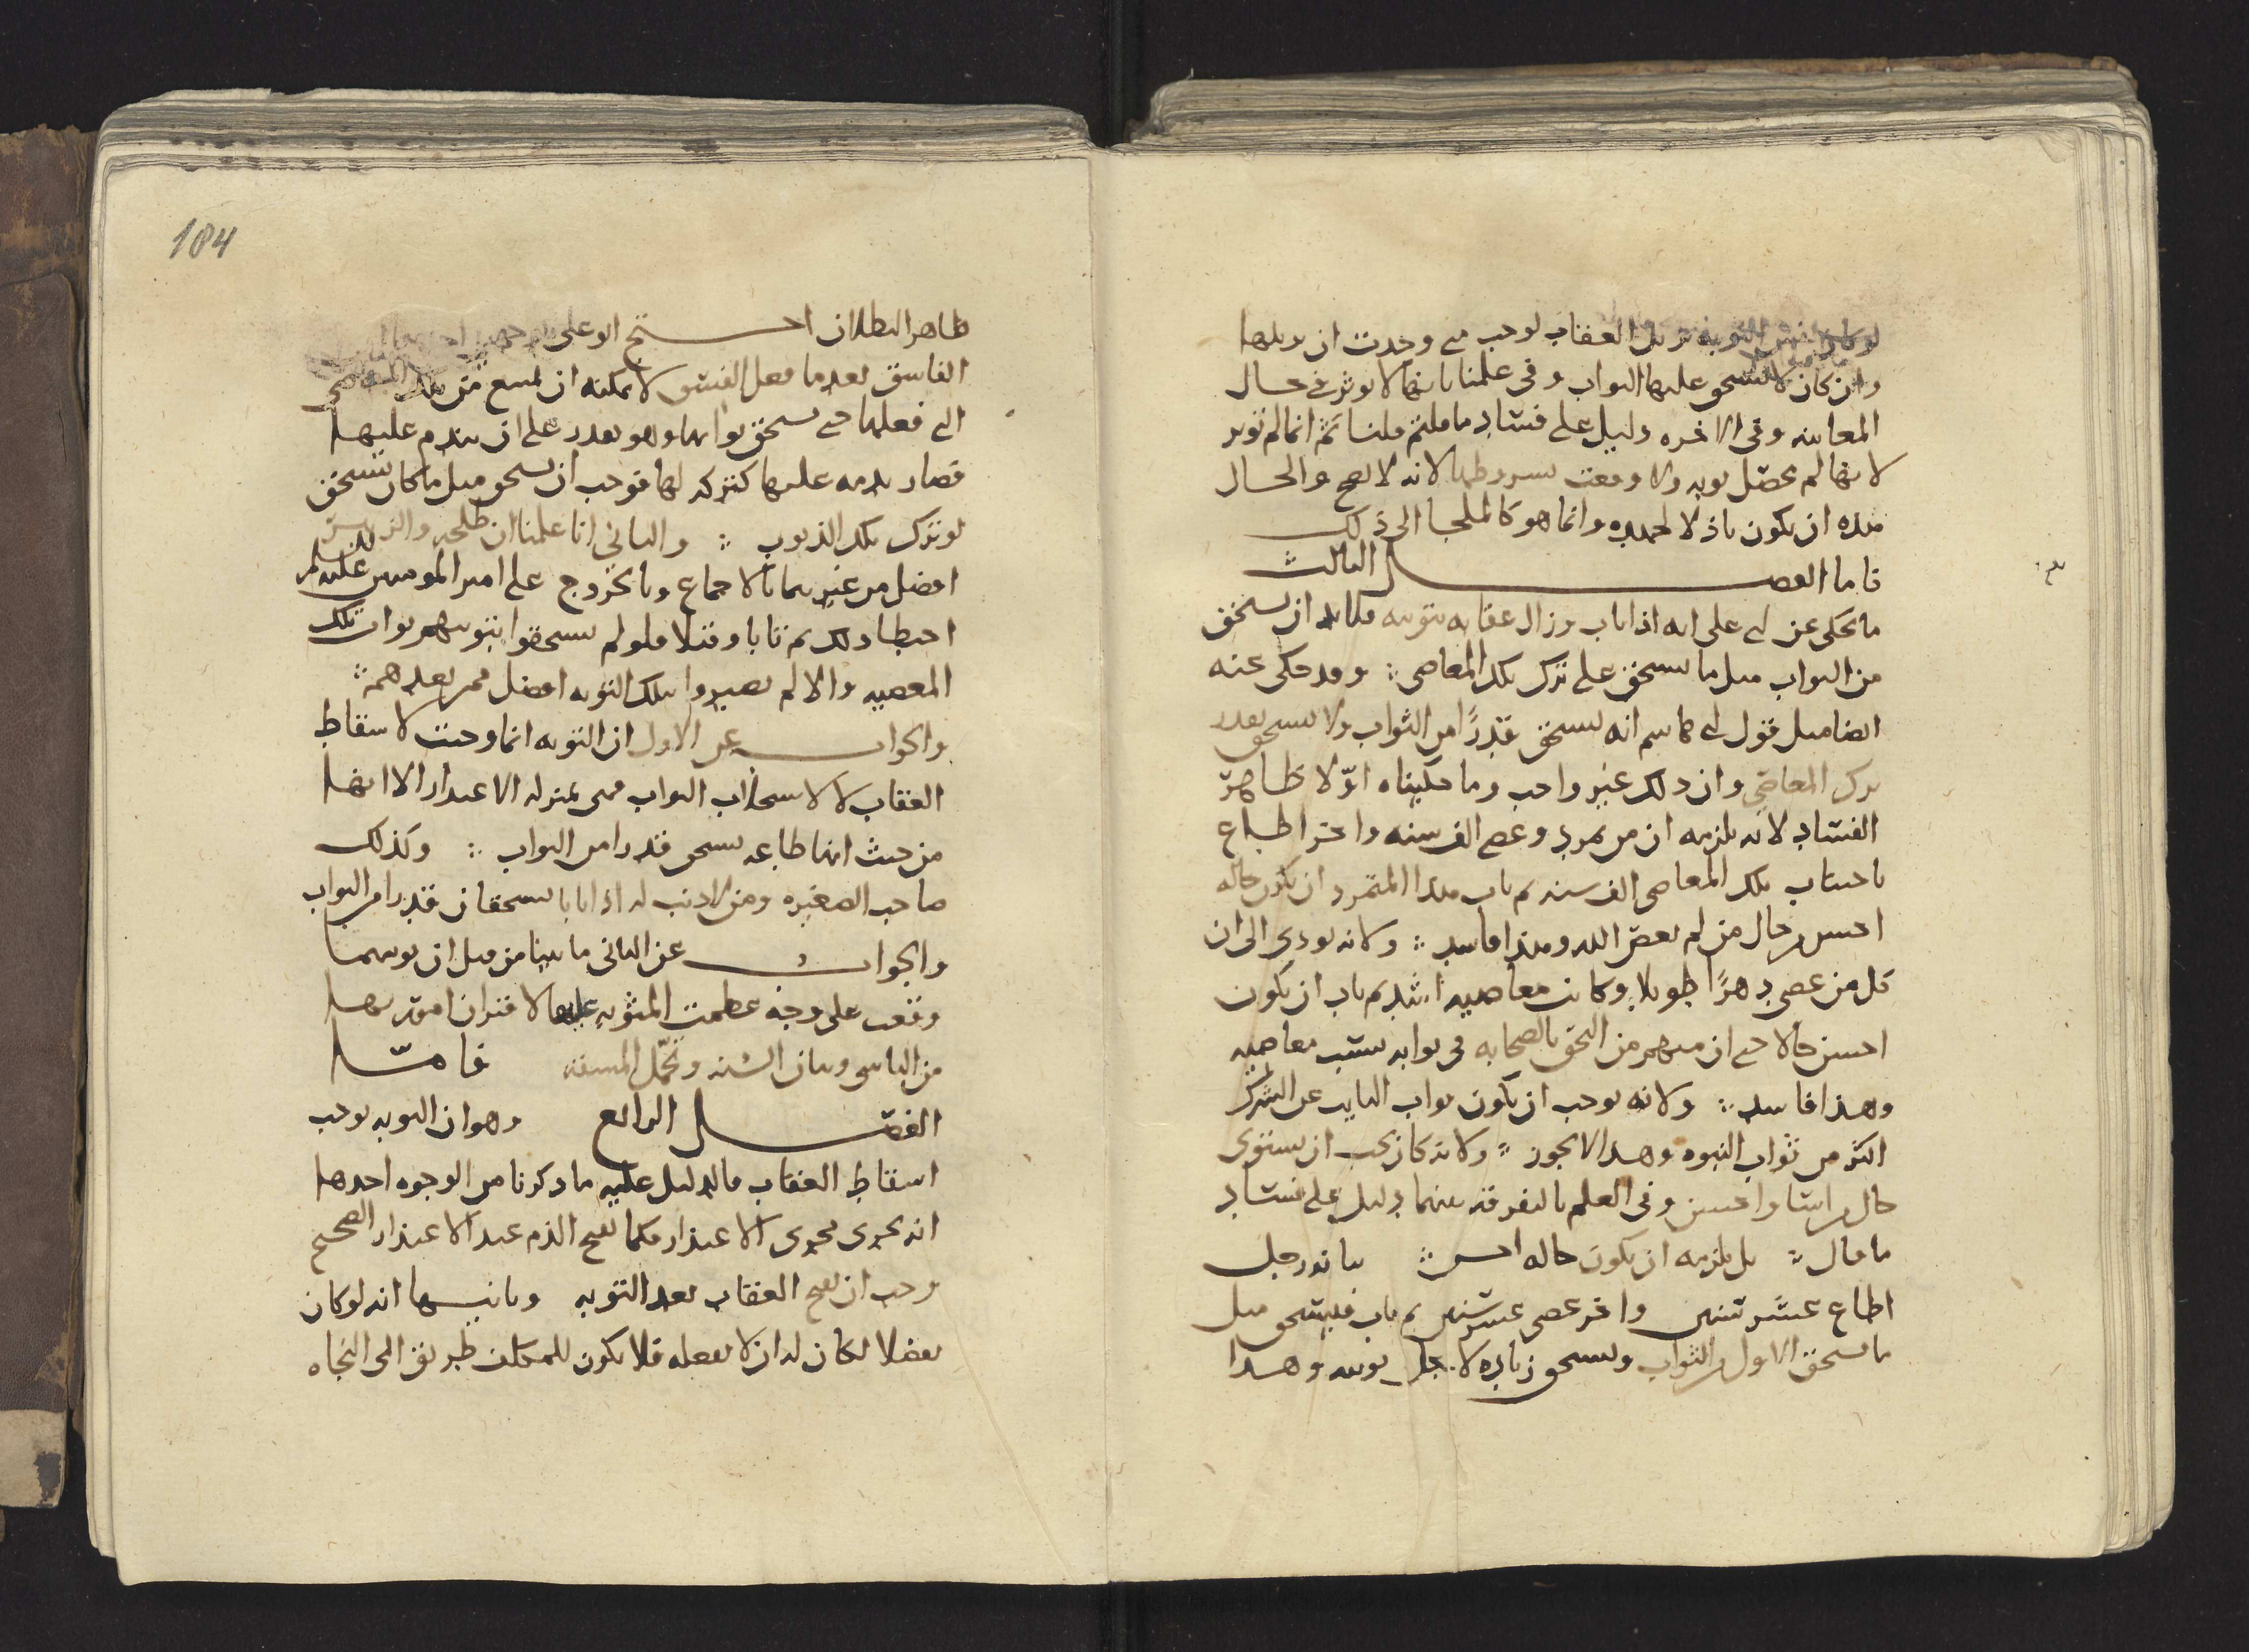 لو كان نفس التوبه تزيل العقاب لوجب متى وجدت ان يزيلها
وان كان لا يستحق عليها الثواب وفى علمنا بانها لا توثر فى حال
المعاينه وفى الاخره دليل على فساد ما قلتم قلنا نعم انما لم توثر
لانها لم تحصل توبه ولا وقعت بشروطها لانه لا يصح والحال
هذه ان يكون باذلا لجهده وانما هو كالملجا الى ذلك
فاما الفصل الثالث
ما يحكى عن ابى على انه اذا تاب وزال عقابه بتوبته فلابد ان يستحق
من الثواب مثل ما يستحق على ترك تلك المعاصى وقد حكى عنه
ايضا مثل قول ابى هاشم انه يستحق قدرًا من الثواب ولا يستحق بعدد
ترك المعاصى وان ذلك غير واجب وما حكيناه اوّلا ظاهر
الفساد لانه يلزمه ان من تمرد وعصى الف سنه واخر اطاع
باجتناب تلك المعاصى الف سنه ثم تاب هذا المتمرد ان يكون حاله
احسن من حال من لم يعص الله وهذا فاسد ولانه يودى الى ان
كل من عصى دهرًا طويلا وكانت معاصيه اشد ثم تاب ان يكون
احسن حالا حتى ان منهم من التحق بالصحابه فى ثوابه بسبب معاصيه
وهذا فاسد ولانه يوجب ان يكون ثواب التايب عن الشرك
اكثر من ثواب النبوه وهذا لا يجوز ولانه كان يجب ان يستوى
حال من اسا واحسن وفى العلم بالتفرقه بينهما دليل على فساد
ما قال بل يلزمه ان يكون حاله احسن بيانه رجل
اطاع عشر سنين واخر عصى عشر سنين ثم تاب فيستحق مثل
ما يستحق الاول من الثواب ويستحق زياده لاجل توبته وهذا
184
ظاهر البطلان احتج ابو على
الفاسق بعد ما فعل الفسق لا يمكنه ان يمتنع من تلك المعاصى
التى فعلها حتى يستحق ثوابها وهو يقدر على ان يندم عليها
فصار ندمه عليها كتركه لها فوجب ان يستحق مثل ما كان يستحق
لو ترك تلك الذنوب والثانى انا علمنا ان طلحه والزبير
افضل من غيرهما بالاجماع وبالخروج على امير المومنين عليه السلم
احبطا ذلك ثم تابا وقتلا فلو لم يستحقوا بتوبتهم ثواب تلك
المعصيه والا لم يصيروا بتلك التوبه افضل ممن بعدهم
والجواب عن الاول ان التوبه انما وجبت لاسقاط
العقاب لا لاستجلاب الثواب فهى بمنزله الاعتذار الا انها
من حيث انها طاعه يستحق قدرا من الثواب وكذلك
صاحب الصغيره ومن لا ذنب له اذا تابا يستحقان قدرا من الثواب
والجواب عن الثانى ما بينا من قبل ان توبتهما
وقعت على وجه عظمت المثوبه عليها لاقتران امور بها
من التاسى وبيان السنه وتحمل المشقه فاما
الفصل الرابع وهو ان التوبه توجب
اسقاط العقاب فالدليل عليه ما ذكرنا من الوجوه احدها
انه يجرى مجرى الاعتذار فكما يقبح الذم عند الاعتذار الصحيح
وجب ان يقبح العقاب بعد التوبه وثانيها انه لو كان
تفضلا لكان له ان لا يفعله فلا يكون للمكلف طريق الى النجاه